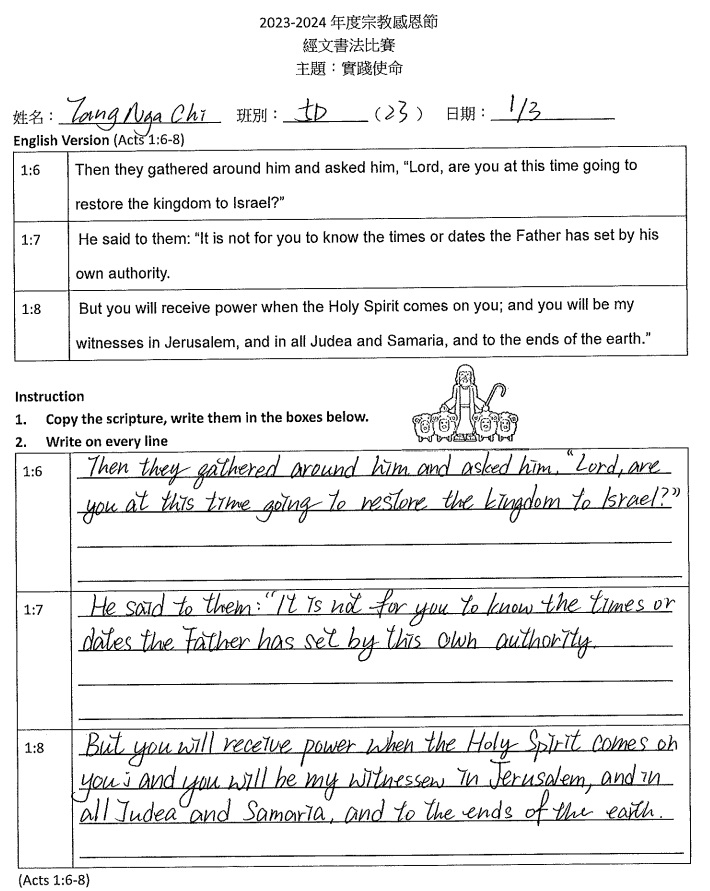 2023-2024 年度宗教感恩節
經文書法比賽
主題：實踐使命
姓名： Tang Nga Chi 班別： 1D (23) 日期： 1/3
English Version (Acts 1:6-8)
1:6 Then they gathered around him and asked him, “Lord, are you at this time going to
restore the kingdom to Israel?”
1:7 He said to them: “It is not for you to know the times or dates the Father has set by his
own authority.
1:8 But you will receive power when the Holy Spirit comes on you; and you will be my
witnesses in Jerusalem, and in all Judea and Samaria, and to the ends of the earth.”
Instruction
1. Copy the scripture, write them in the boxes below.
2. Write on every line
1:6 Then they gathered around him and asked him, “Lord, are
you at this time going to restore the kingdom to Israel?”
1:7 He said to them: “It is not for you to know the times or
dates the Father has set by this own authority.
1:8 But you will receive power when the Holy Spirit comes on
you; and you will be my witnessew in Jerusalem, and in
all Judea and Samaria, and to the ends of the earth.
(Acts 1:6-8)